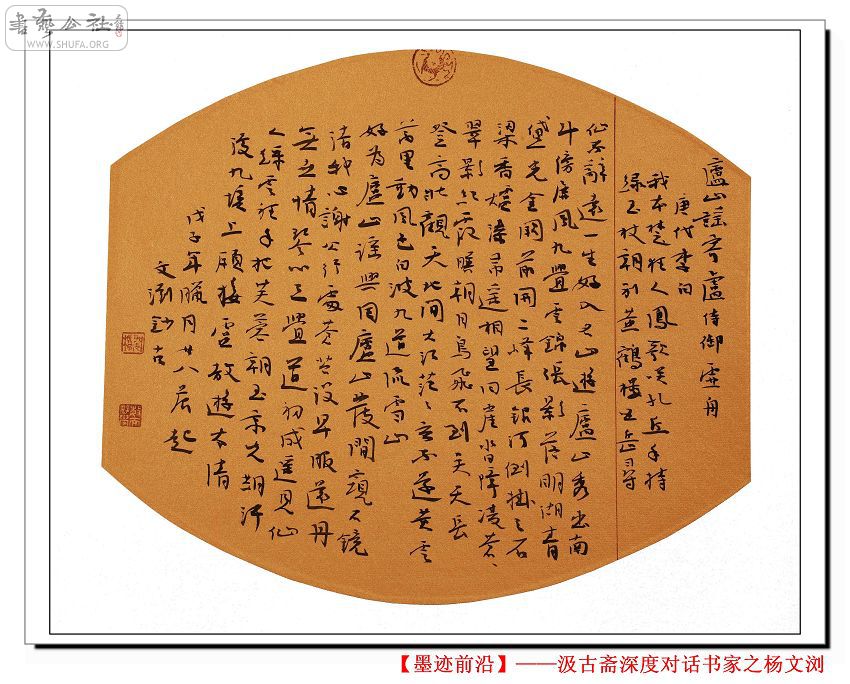 書藝公社
WWW.SHUFA.ORG
廬山謡寄盧侍御虚舟
唐代李白
我本楚狂人鳳歌笑孔丘手持
緑玉杖朝别黄鶴樓五岳尋
仙不辭遠一生好入名山遊廬山秀出南
斗傍屏風九疊雲錦張影落明湖青
黛光金闕前開二峰長銀河倒掛三石
梁香爐瀑布遥相望回崖沓嶂凌蒼、
翠影紅霞映朝日鳥飛不到吴天長
登高壯觀天地間大江茫、去不還黄雲
萬里動風色白波九道流雪山
好為廬山謡興因廬山發閒窺石鏡
清我心謝公行處蒼苔没早服還丹
無世情琴心三疊道初成遥見仙
人綵雲裏手把芙蓉朝玉京先期汗
漫九垓上願接盧敖遊太清
戊子年臘月廿八晨起
文浏鈔古
【墨迹前沿】——汲古斋深度对话书家之杨文浏